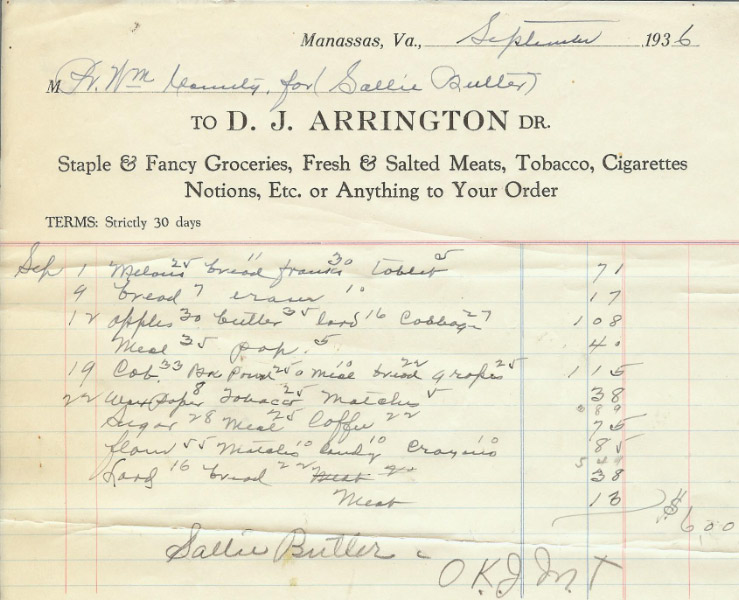 Manassas, Va., September 1936
M Pr. Wm County, for (Sallie Butler)
TO D. J. ARRINGTON DR.
Staple & Fancy Groceries, Fresh & Salted Meats, Tobacco, Cigarettes
Notions, Etc. or Anything to Your Order
TERMS: Strictly 30 days
Sep 1 Melons 25 bread 11 franks 30 tablet 5 71
9 bread 7 eraser 10 17
12 apples 30 butter 35 lard 16 Cabbage 27 108
Meal 35 pop. 5 40
19 Cab. 33 Powd 25 Meal 10 bread 22 grapes 25 115
22 Wax Paper 8 Tobacco 25 Matches 5 38
Sugar 28 Meal 25 Coffee 22 75
flour 55 Matches 10 Candy 10 Crayons 10 85
Lard 16 bread 22 Meat 38
Meat 13
6.00
Sallie Butler
O K J M T